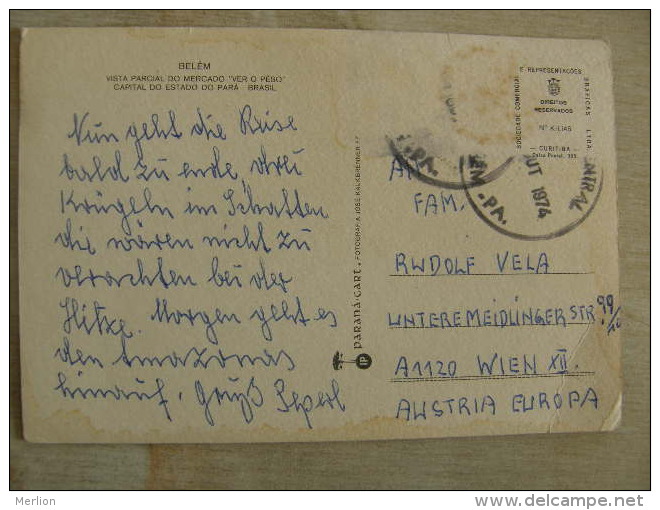 BELÉM
VISTA PARCIAL DO MERCADO "VER O PÊSO"
CAPITAL DO ESTADO DO PARÁ BRASIL
Nun geht die Reise
bald zu ende, drei
Krügeln im Schatten
die wären nicht zu
verachten bei der
Hitze. Morgen geht es
den Amazonas
hinauf. Gruß Peperl
PARANÁ-CART.
FOTOGRAFIA JOSÉ KALKBRENNER Fº
SOCIEDADE COMERCIAL
E REPRESENTAÇÕES
GRÁFICAS LTDA.
DIREITOS
RESERVADOS
CURITIBA
Caixa Postal,
OUT 1974
CENTRAL
EM. PA.
. PA.
AN
FAM.
RUDOLF VELA
UNTEREMEIDLINGER STR. 99/
A1120 WIEN XII.
AUSTRIA EUROPA
Merlion
www.delcampe.net